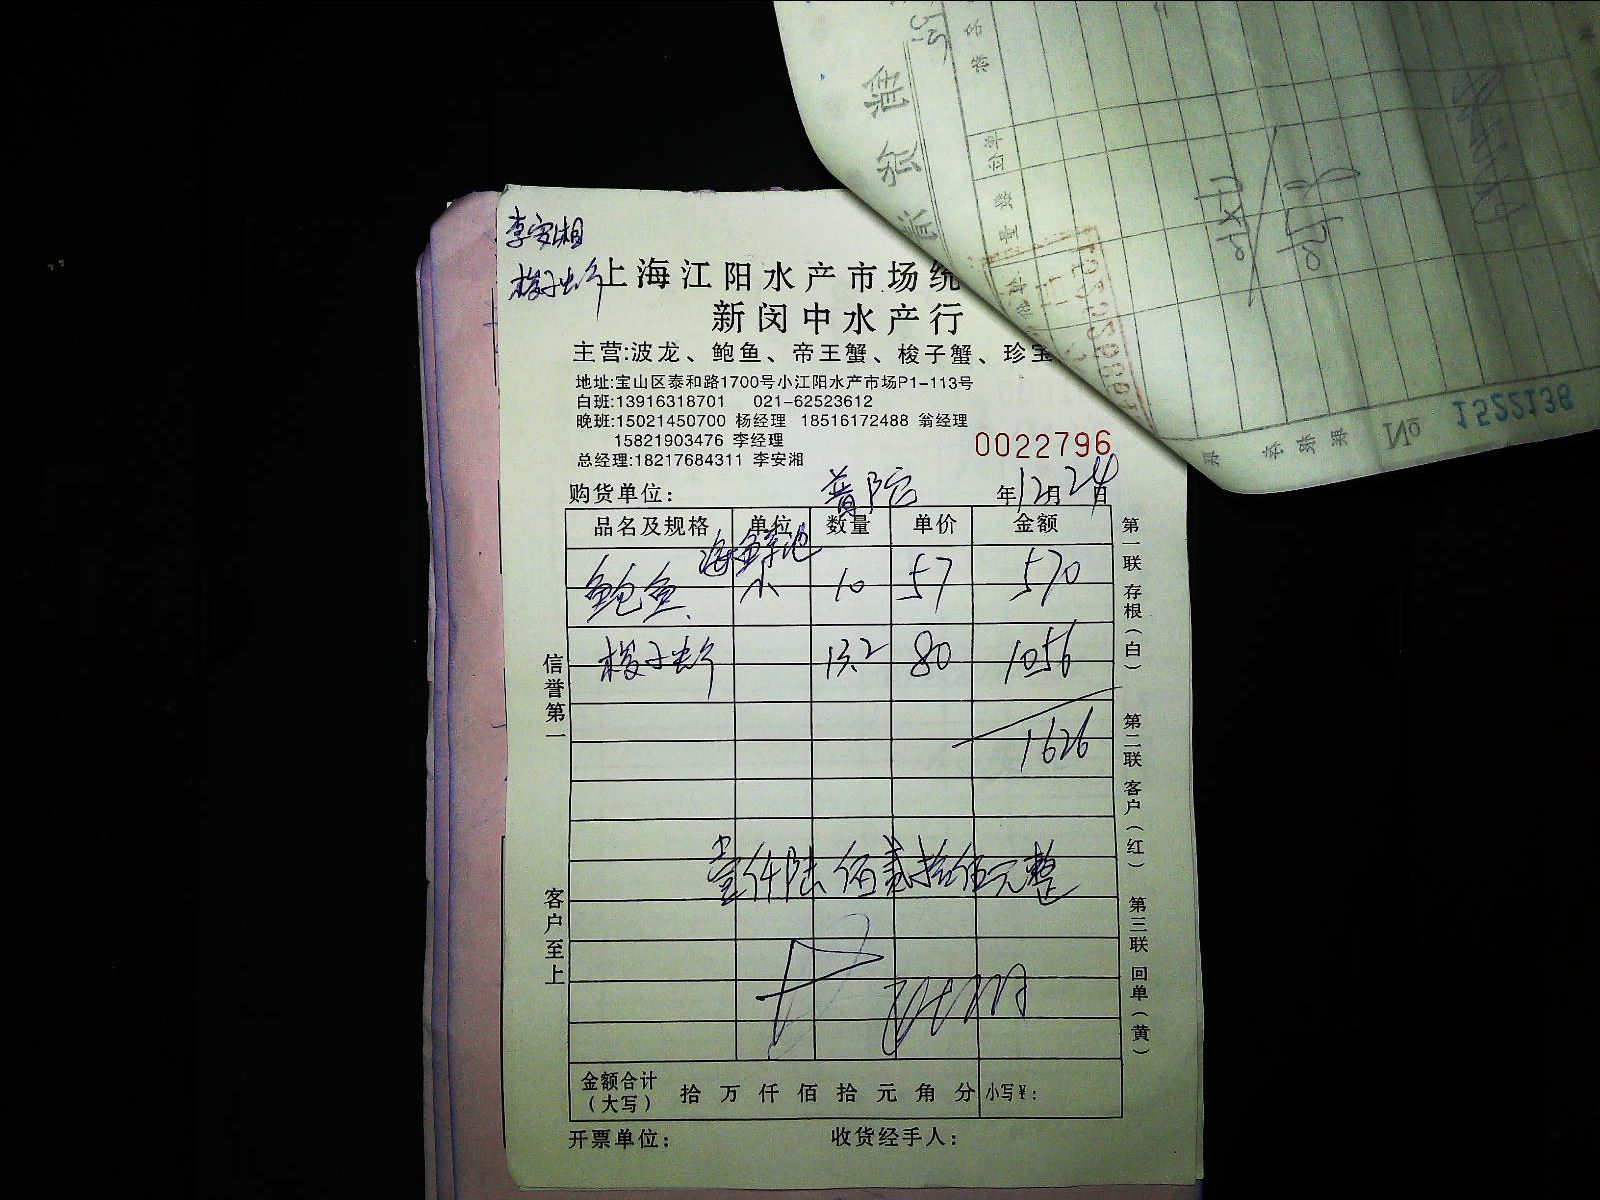 李安湘
梭子蟹
上海江阳水产市场统
新闵中水产行
主营:波龙、鲍鱼、帝王蟹、梭子蟹、珍宝
地址:宝山区泰和路1700号小江阳水产市场P1-113号
白班:13916318701 021-62523612
晚班:15021450700 杨经理 18516172488 翁经理
15821903476 李经理
总经理:18217684311 李安湘
0022796
购货单位: 普陀 年12月24日
品名及规格 单位 数量 单价 金额
海鲜池
鲍鱼 小 10 57 570
梭子蟹 13.2 80 1056
1626
壹仟陆佰贰拾伍元整
金额合计(大写) 拾 万 仟 佰 拾 元 角 分 小写¥:
开票单位: 收货经手人:
信誉第一
客户至上
第一联 存根(白)
第二联 客户(红)
第三联 回单(黄)
No 1522138